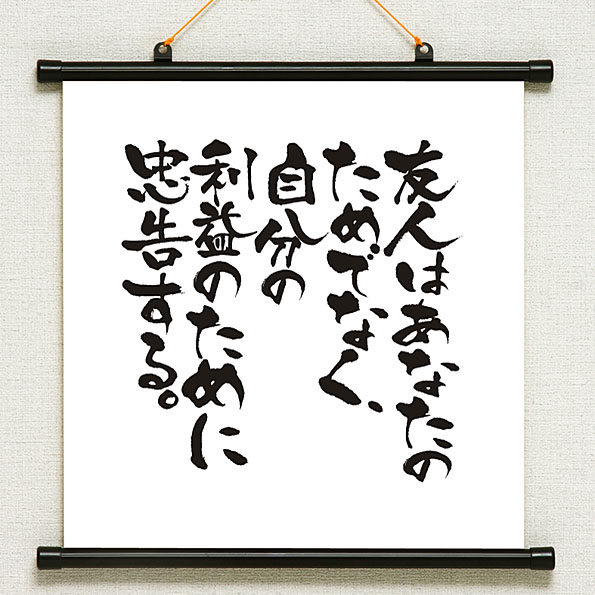 友人はあなたの
ためでなく、
自分の
利益のために
忠告する。